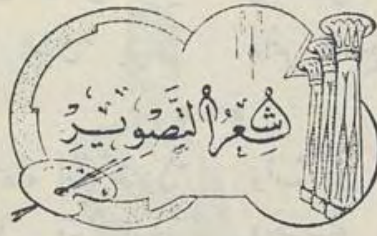 شِعْرُ التَّصوِيرِ